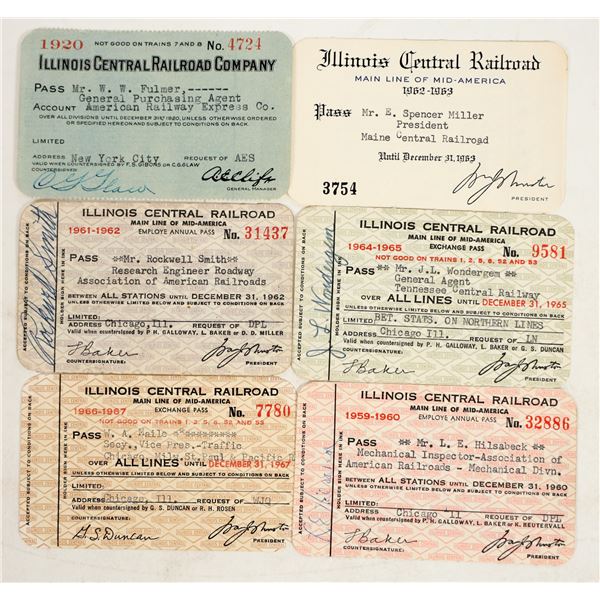 1920 NOT GOOD ON TRAINS 7 AND 8 No. 4724
ILLINOIS CENTRAL RAILROAD COMPANY
PASS Mr. W. W. Fulmer,------
General Purchasing Agent
ACCOUNT American Railway Express Co.
OVER ALL DIVISIONS UNTIL DECEMBER 31ST 1920, UNLESS OTHERWISE ORDERED
OR SPECIFIED HEREON AND SUBJECT TO CONDITIONS ON BACK.
LIMITED
ADDRESS New York City REQUEST OF AES
VALID WHEN COUNTERSIGNED BY F.S. GIBONS OR C.G. GLAW
COUNTERSIGNED
GENERAL MANAGER
Illinois Central Railroad
MAIN LINE OF MID-AMERICA
1962-1963
Pass Mr. E. Spencer Miller
President
Maine Central Railroad
Until December 31, 1963
3754
PRESIDENT
ILLINOIS CENTRAL RAILROAD
MAIN LINE OF MID-AMERICA
1961-1962 EMPLOYE ANNUAL PASS No. 31437
PASS **Mr. Rockwell Smith**
Research Engineer Roadway
Association of American Railroads
BETWEEN ALL STATIONS UNTIL DECEMBER 31, 1962
UNLESS OTHERWISE ORDERED AND SUBJECT TO CONDITIONS ON BACK
LIMITED
ADDRESS Chicago, Ill. REQUEST OF DPL
Valid when countersigned by P. H. GALLOWAY, L. BAKER or D. D. MILLER
L Baker
COUNTERSIGNATURE:
PRESIDENT
ACCEPTED SUBJECT TO CONDITIONS ON BACK
Rockwell Smith
HOLDER SIGN HERE IN INK
ILLINOIS CENTRAL RAILROAD
MAIN LINE OF MID-AMERICA
1964-1965 EXCHANGE PASS No. 9581
NOT GOOD ON TRAINS 1, 2, 5, 6, 52 AND 53
PASS **Mr. J.L. Wondergem
General Agent
Tennessee Central Railway
OVER ALL LINES UNTIL DECEMBER 31, 1965
UNLESS OTHERWISE LIMITED BELOW AND SUBJECT TO CONDITIONS ON BACK
LIMITED BET. STATS. ON NORTHERN LINES
ADDRESS Chicago Ill. REQUEST OF LN
Valid when countersigned by P. H. GALLOWAY, L. BAKER or G. S. DUNCAN
L Baker
COUNTERSIGNATURE:
PRESIDENT
ACCEPTED SUBJECT TO CONDITIONS ON BACK
J L Wondergem
HOLDER SIGN HERE IN INK
ILLINOIS CENTRAL RAILROAD
MAIN LINE OF MID-AMERICA
1966-1967 EXCHANGE PASS No. 7780
NOT GOOD ON TRAINS 1, 2, 5, 6, 52 AND 53
PASS W. A.
Secy., Vice Pres.-Traffic
Chicago, Milw. St. Paul & Pacific R
OVER ALL LINES UNTIL DECEMBER 31, 1967
UNLESS OTHERWISE LIMITED BELOW AND SUBJECT TO CONDITIONS ON BACK
LIMITED
ADDRESS Chicago, Ill. REQUEST OF WJQ
Valid when countersigned by G. S. DUNCAN or R. H. ROSEN
COUNTERSIGNATURE:
G. S. Duncan
PRESIDENT
ACCEPTED SUBJECT TO CONDITIONS ON BACK
HOLDER SIGN HERE IN INK
ILLINOIS CENTRAL RAILROAD
MAIN LINE OF MID-AMERICA
1959-1960 EMPLOYE ANNUAL PASS No. 32886
PASS **Mr. L. E. Hilsabeck**
Mechanical Inspector-Association of
American Railroads - Mechanical Divn.
BETWEEN ALL STATIONS UNTIL DECEMBER 31, 1960
UNLESS OTHERWISE LIMITED BELOW AND SUBJECT TO CONDITIONS ON BACK
LIMITED
ADDRESS Chicago Ill REQUEST OF DPL
Valid when countersigned by P. H. GALLOWAY, L. BAKER or K. REUTERVALL
COUNTERSIGNATURE:
L Baker
PRESIDENT
ACCEPTED SUBJECT TO CONDITIONS ON BACK
HOLDER SIGN HERE IN INK